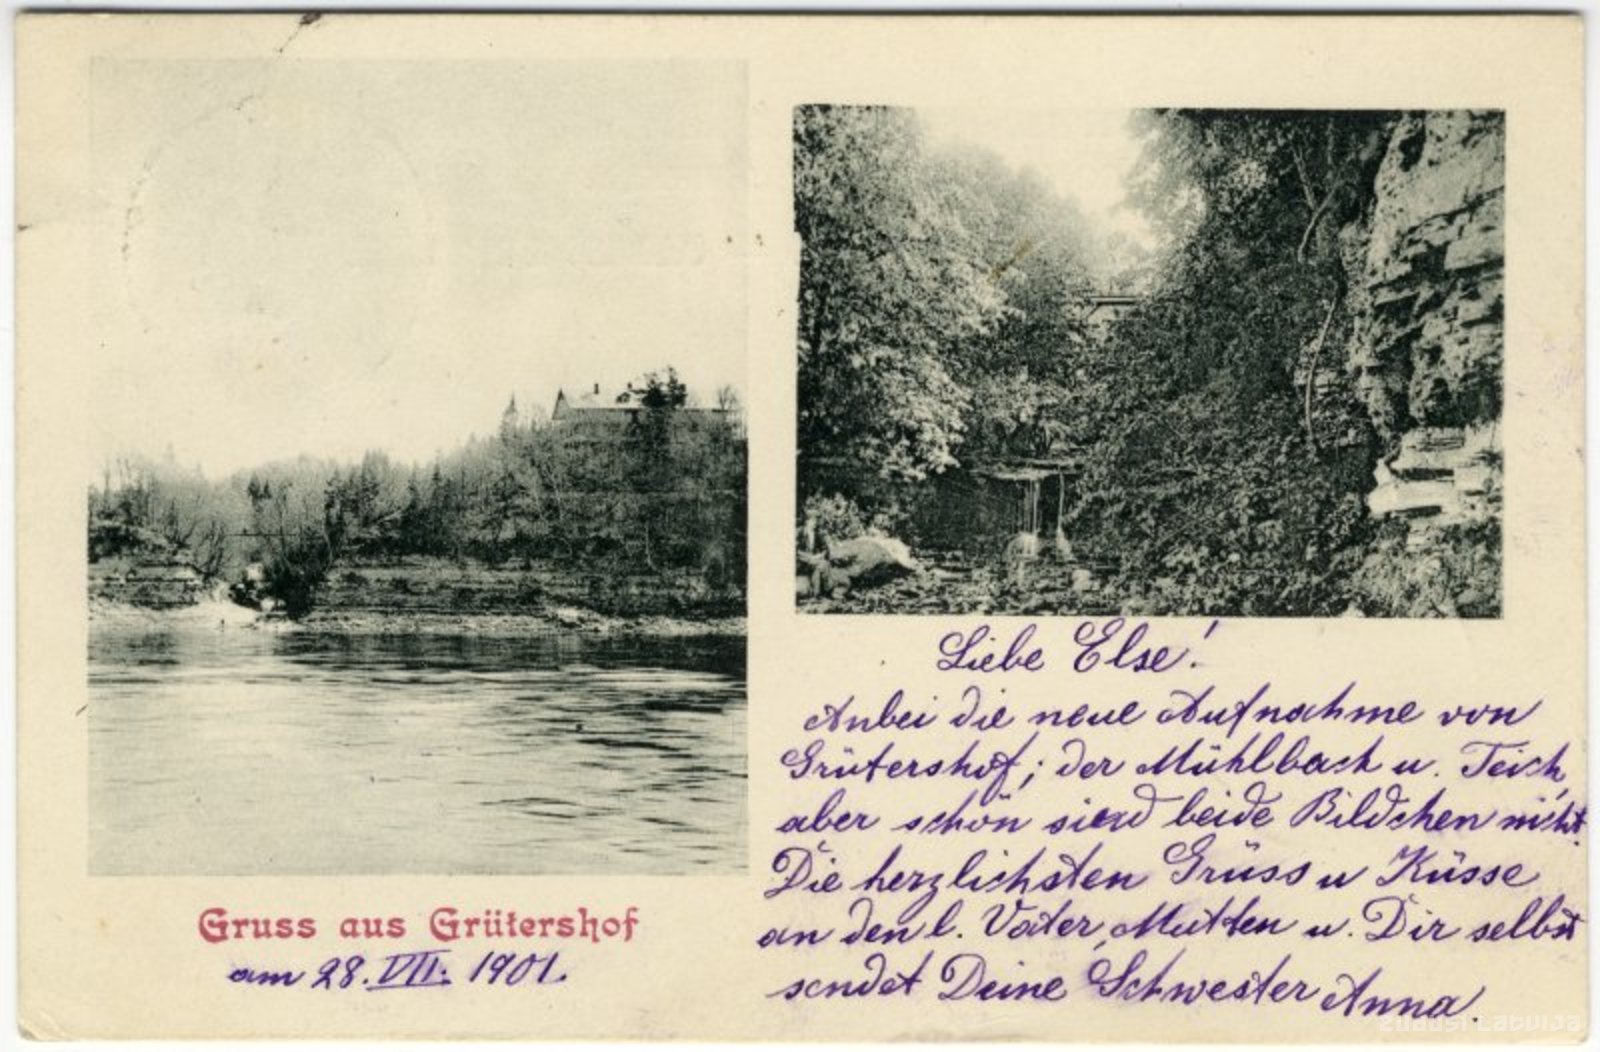 Gruss aus Grütershof
am 28. VII. 1901.
Liebe Else!
Anbei die neue Aufnahme von
Grütershof; der Mühlbach u. Teich,
aber schön sind beide Bildchen nicht.
Die herzlichsten Grüss u Küsse
an den l. Vater, Mutten u. Dir selbst
sendet Deine Schwester Anna.
Zudusi Latvija